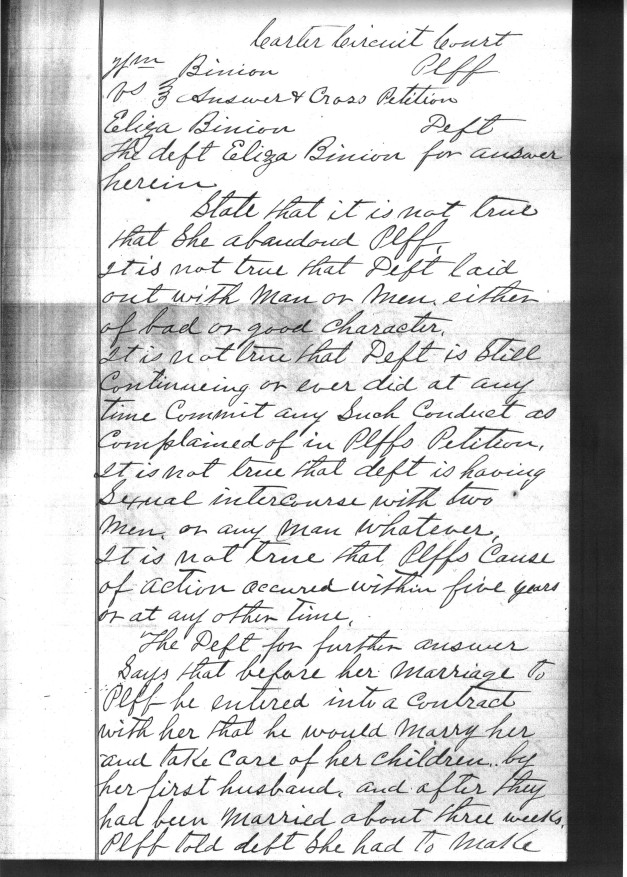 Carter Circuit Court
Wm Binion Plff
vs } Answer & Cross Petition
Eliza Binion Deft
The deft Eliza Binion for answer
herein
State that it is not true
that She abandond Plff.
It is not true that Deft laid
out with Man or Men, either
of bad or good character.
It is not true that Deft is Still
Continueing or ever did at any
time Commit any Such Conduct as
Complained of in Plffs Petition.
It is not true that deft is having
Sexual intercourse with two
Men, or any Man whatever.
It is not true that Plffs Cause
of action accured within five years
or at any other time.
The Deft for further answer
Says that before her Marriage to
Plff he entered into a Contract
with her that he would Marry her
and take Care of her children by
her first husband, and after they
had been Married about three weeks,
Plff told deft She had to Make